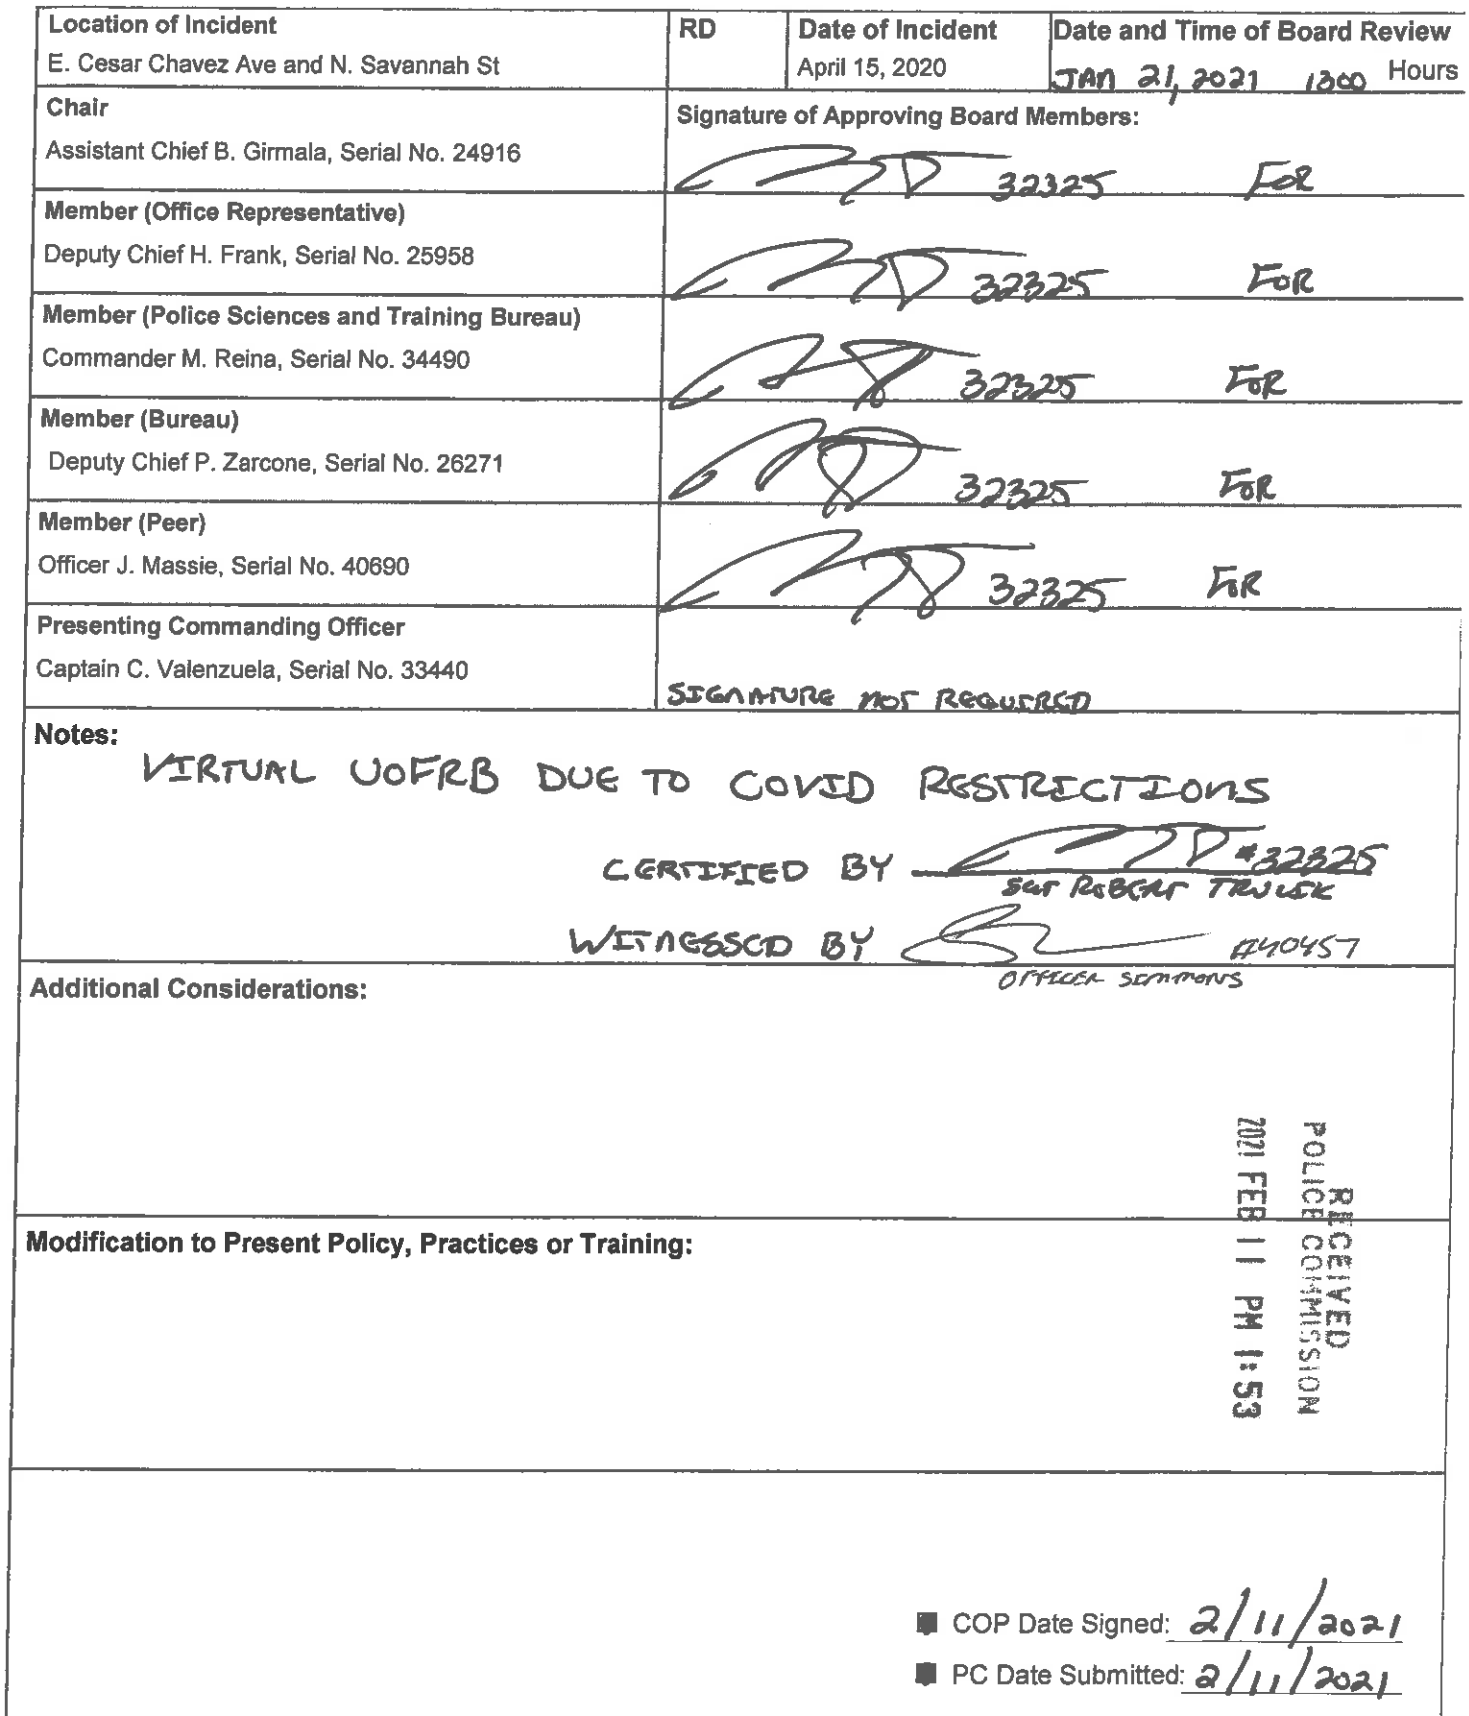 Location of Incident
E. Cesar Chavez Ave and N. Savannah St
RD
Date of Incident
April 15, 2020
Date and Time of Board Review
JAN 21, 2021 1300 Hours
Chair
Assistant Chief B. Girmala, Serial No. 24916
Signature of Approving Board Members:
32325 FOR
Member (Office Representative)
Deputy Chief H. Frank, Serial No. 25958
32325 FOR
Member (Police Sciences and Training Bureau)
Commander M. Reina, Serial No. 34490
32325 FOR
Member (Bureau)
Deputy Chief P. Zarcone, Serial No. 26271
32325 FOR
Member (Peer)
Officer J. Massie, Serial No. 40690
32325 FOR
Presenting Commanding Officer
Captain C. Valenzuela, Serial No. 33440
SIGNATURE NOT REQUIRED
Notes:
VIRTUAL UOFRB DUE TO COVID RESTRICTIONS
CERTIFIED BY #32325
SGT ROBERT
WITNESSED BY #40457
OFFICER SIMMONS
Additional Considerations:
RECEIVED
POLICE COMMISSION
2021 FEB 11 PM 1:53
Modification to Present Policy, Practices or Training:
COP Date Signed: 2/11/2021
PC Date Submitted: 2/11/2021